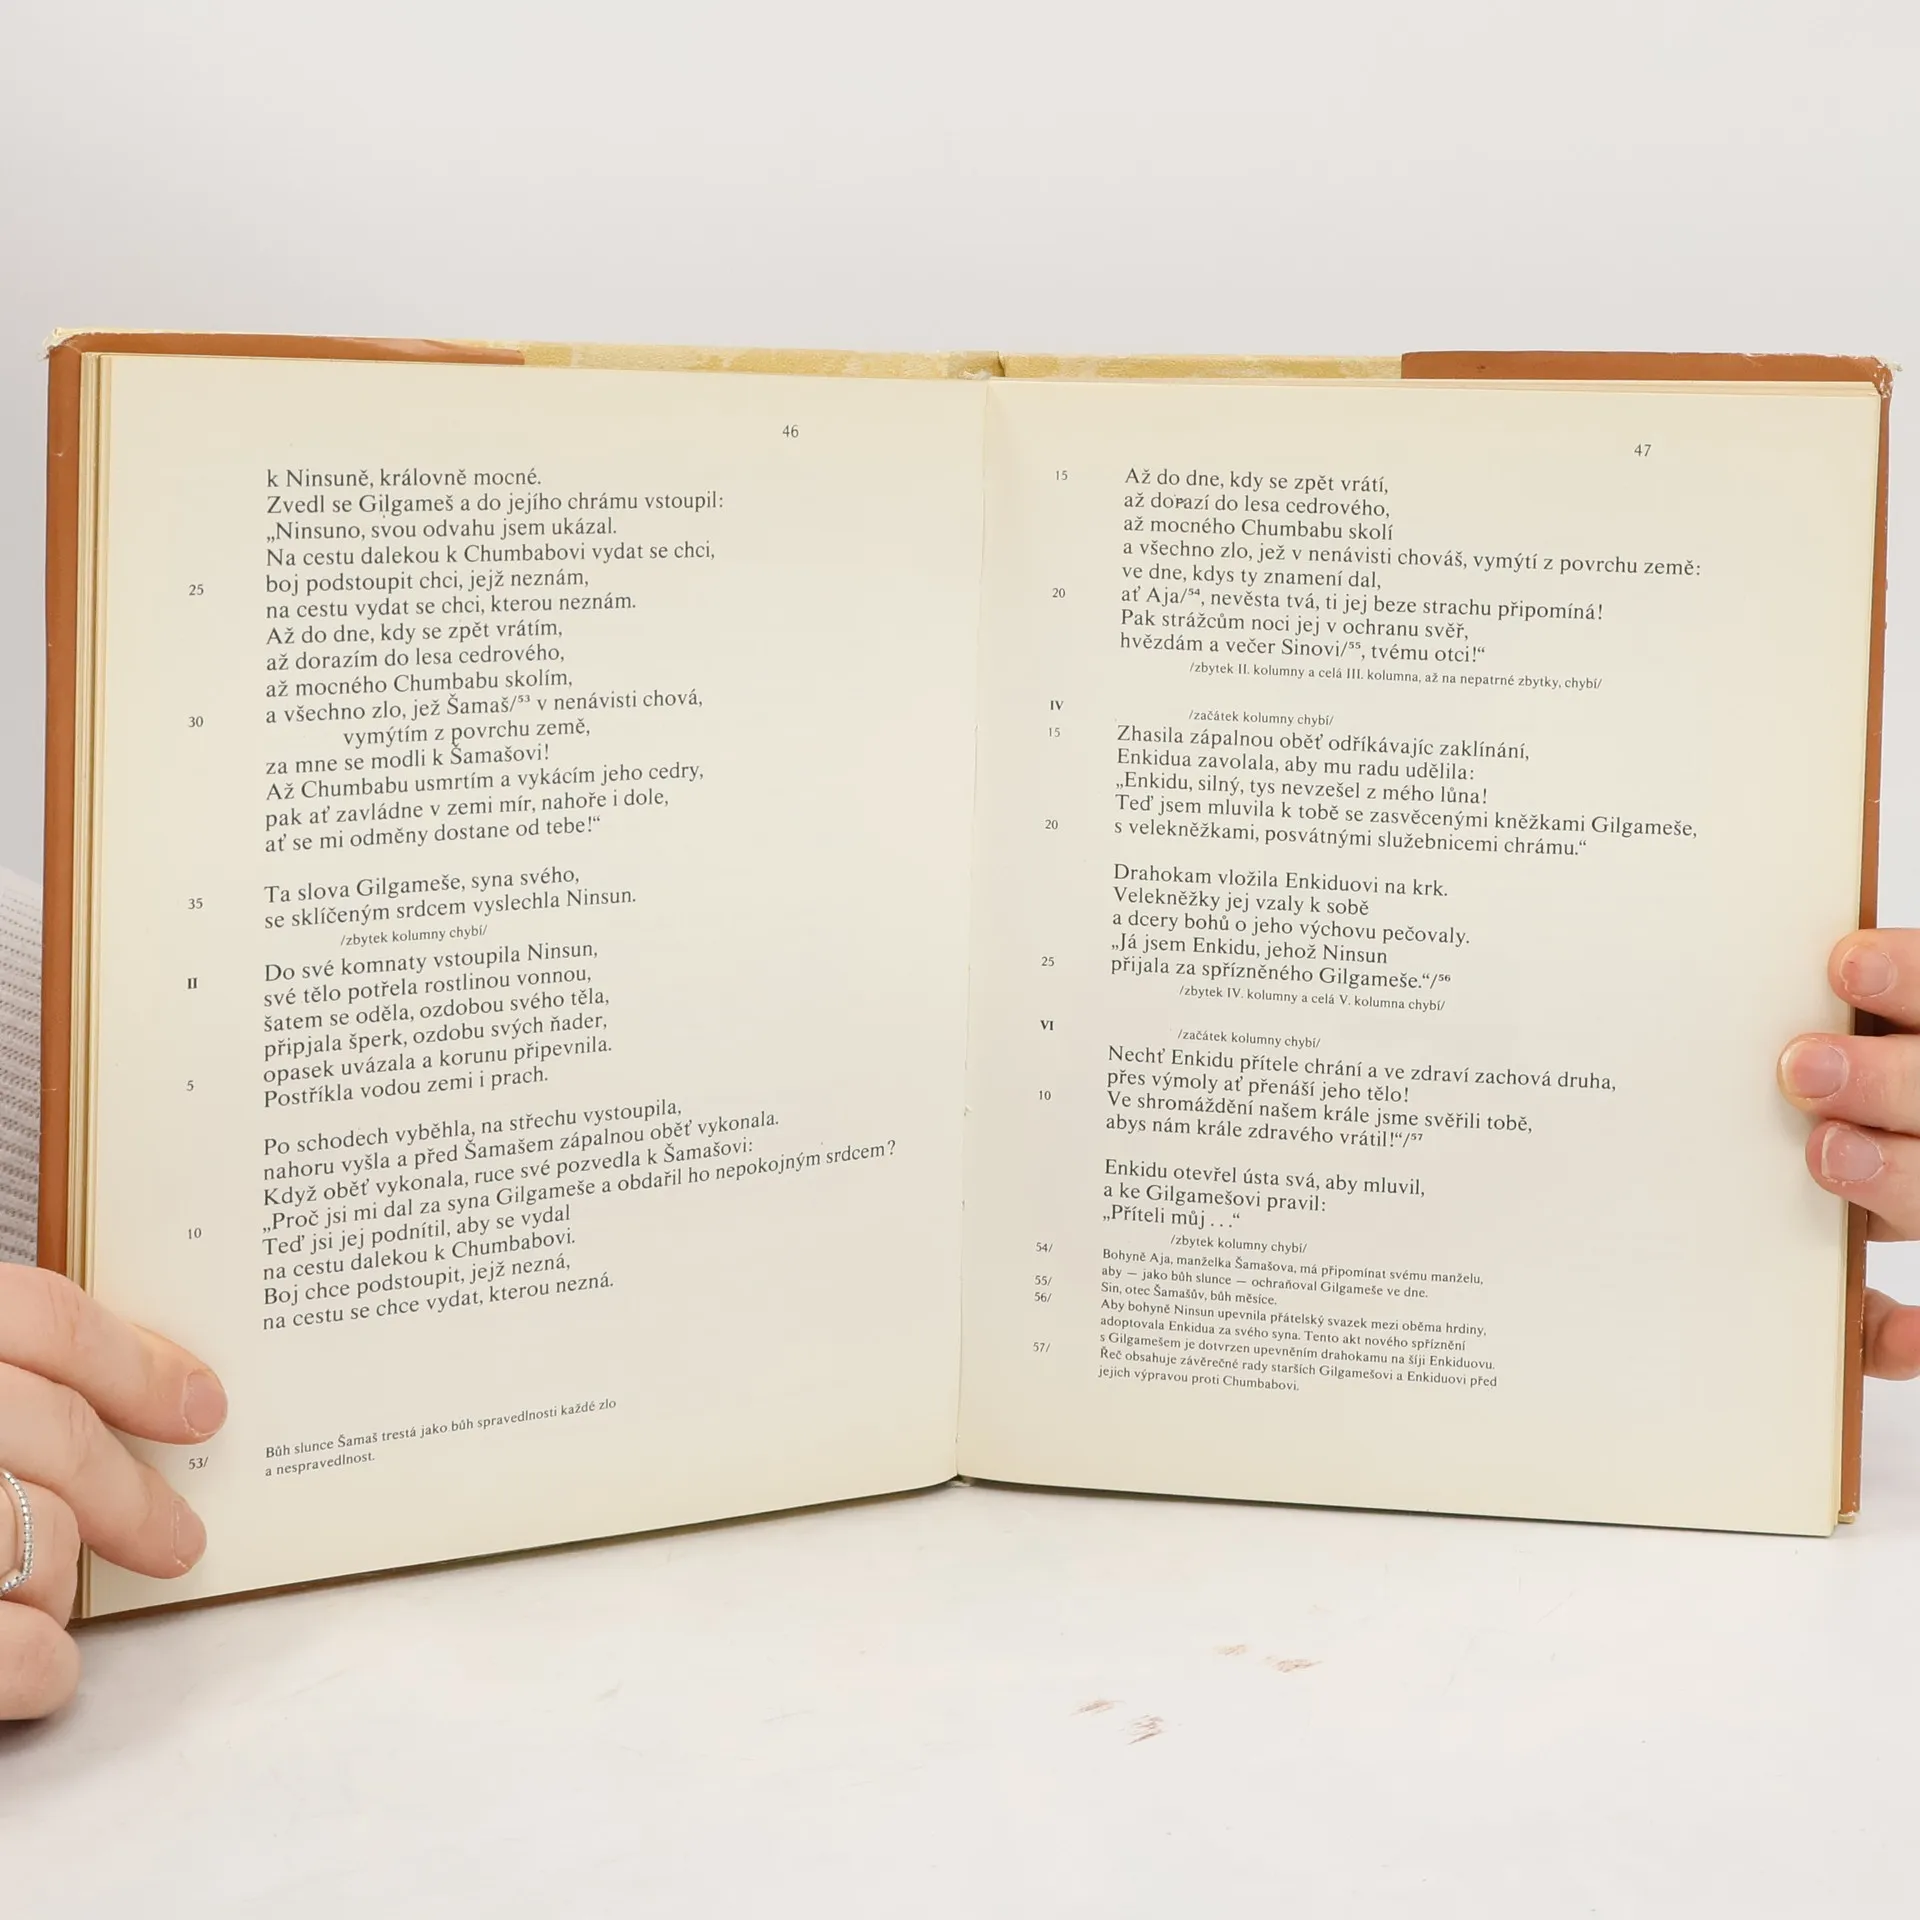 46
k Ninsuně, královně mocné.
Zvedl se Gilgameš a do jejího chrámu vstoupil:
„Ninsuno, svou odvahu jsem ukázal.
Na cestu dalekou k Chumbabovi vydat se chci,
25 boj podstoupit chci, jejž neznám,
na cestu vydat se chci, kterou neznám.
Až do dne, kdy se zpět vrátím,
až dorazím do lesa cedrového,
až mocného Chumbabu skolím,
30 a všechno zlo, jež Šamaš/⁵³ v nenávisti chová,
vymýtím z povrchu země,
za mne se modli k Šamašovi!
Až Chumbabu usmrtím a vykácím jeho cedry,
pak ať zavládne v zemi mír, nahoře i dole,
ať se mi odměny dostane od tebe!“
35 Ta slova Gilgameše, syna svého,
se sklíčeným srdcem vyslechla Ninsun.
/zbytek kolumny chybí/
II Do své komnaty vstoupila Ninsun,
své tělo potřela rostlinou vonnou,
šatem se oděla, ozdobou svého těla,
připjala šperk, ozdobu svých ňader,
opasek uvázala a korunu připevnila.
5 Postříkla vodou zemi i prach.
Po schodech vyběhla, na střechu vystoupila,
nahoru vyšla a před Šamašem zápalnou oběť vykonala.
Když oběť vykonala, ruce své pozvedla k Šamašovi:
„Proč jsi mi dal za syna Gilgameše a obdařil ho nepokojným srdcem?
10 Teď jsi jej podnítil, aby se vydal
na cestu dalekou k Chumbabovi.
Boj chce podstoupit, jejž nezná,
na cestu se chce vydat, kterou nezná.
53/ Bůh slunce Šamaš trestá jako bůh spravedlnosti každé zlo
a nespravedlnost.
47
15 Až do dne, kdy se zpět vrátí,
až dorazí do lesa cedrového,
až mocného Chumbabu skolí
a všechno zlo, jež v nenávisti chováš, vymýtí z povrchu země:
ve dne, kdys ty znamení dal,
20 ať Aja/⁵⁴, nevěsta tvá, ti jej beze strachu připomíná!
Pak strážcům noci jej v ochranu svěř,
hvězdám a večer Sinovi/⁵⁵, tvému otci!“
/zbytek II. kolumny a celá III. kolumna, až na nepatrné zbytky, chybí/
IV /začátek kolumny chybí/
15 Zhasila zápalnou oběť odříkávajíc zaklínání,
Enkidua zavolala, aby mu radu udělila:
„Enkidu, silný, tys nevzešel z mého lůna!
Teď jsem mluvila k tobě se zasvěcenými kněžkami Gilgameše,
20 s velekněžkami, posvátnými služebnicemi chrámu.“
Drahokam vložila Enkiduovi na krk.
Velekněžky jej vzaly k sobě
a dcery bohů o jeho výchovu pečovaly.
„Já jsem Enkidu, jehož Ninsun
25 přijala za spřízněného Gilgameše.“/⁵⁶
/zbytek IV. kolumny a celá V. kolumna chybí/
VI /začátek kolumny chybí/
Nechť Enkidu přítele chrání a ve zdraví zachová druha,
přes výmoly ať přenáší jeho tělo!
10 Ve shromáždění našem krále jsme svěřili tobě,
abys nám krále zdravého vrátil!“/⁵⁷
Enkidu otevřel ústa svá, aby mluvil,
a ke Gilgamešovi pravil:
„Příteli můj . . .“
/zbytek kolumny chybí/
54/ Bohyně Aja, manželka Šamašova, má připomínat svému manželu,
aby — jako bůh slunce — ochraňoval Gilgameše ve dne.
55/ Sin, otec Šamašův, bůh měsíce.
56/ Aby bohyně Ninsun upevnila přátelský svazek mezi oběma hrdiny,
adoptovala Enkidua za svého syna. Tento akt nového spříznění
s Gilgamešem je dotvrzen upevněním drahokamu na šíji Enkiduovu.
57/ Řeč obsahuje závěrečné rady starších Gilgamešovi a Enkiduovi před
jejich výpravou proti Chumbabovi.